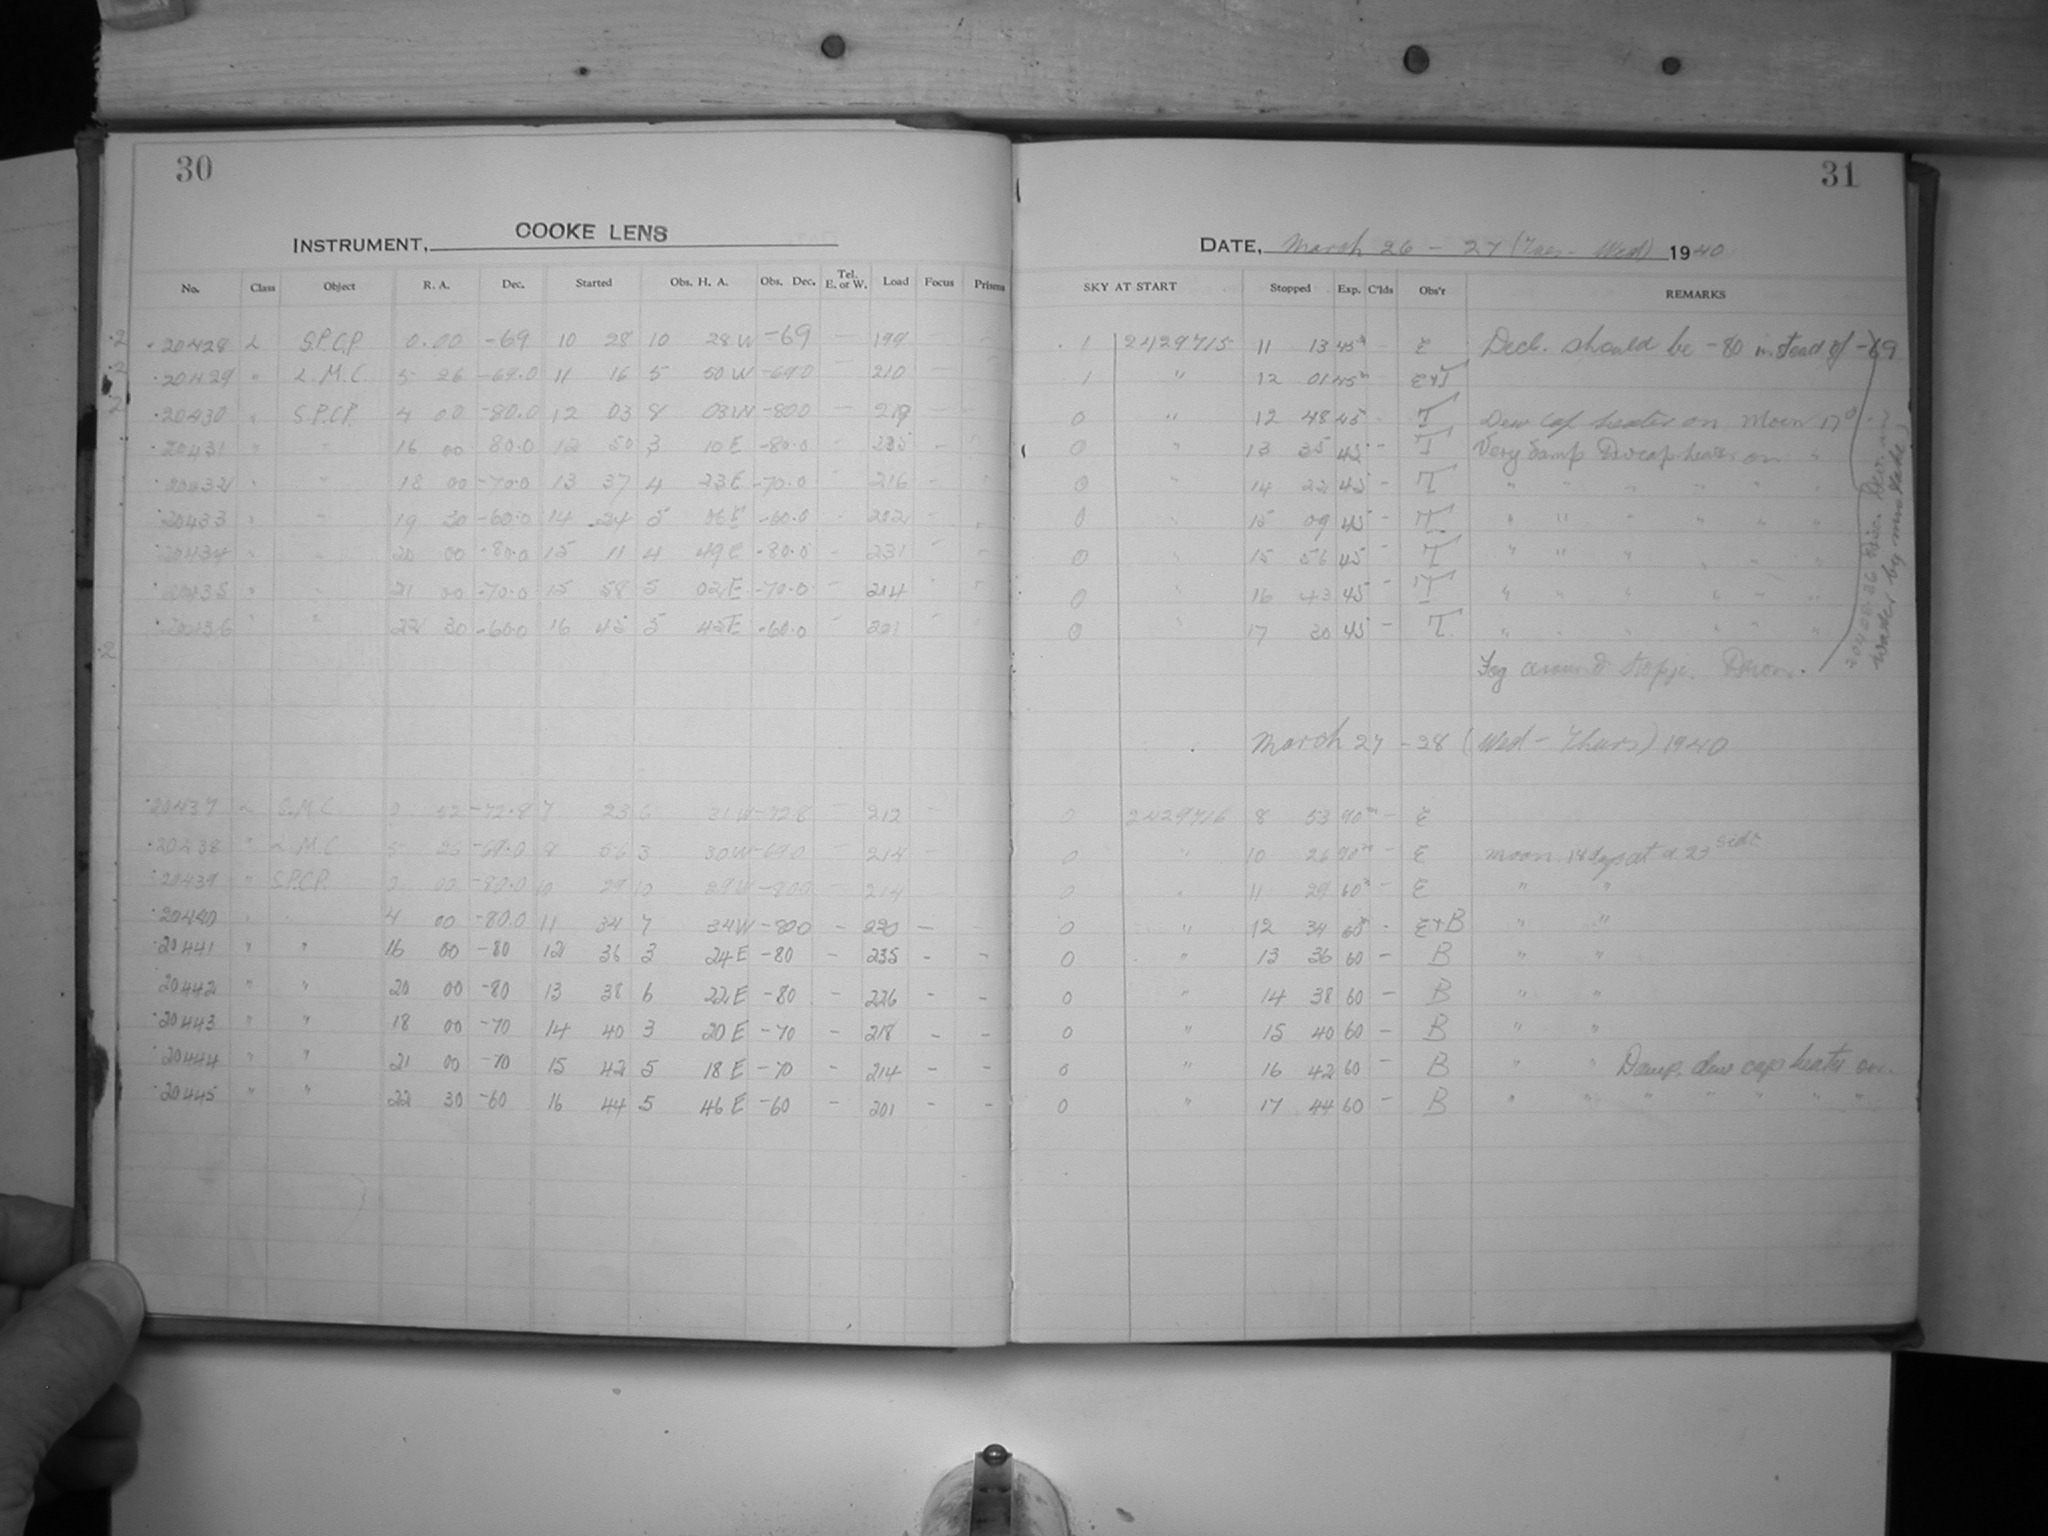 30
INSTRUMENT, COOKE LENS
No. Class Object R. A. Dec. Started Obs. H. A. Obs. Dec. Tel. E. or W. Load Focus Prisms
20428 L S.P.C.P. 0. 00 -69 10 28 10 28 W -69 — 199
20429 " L.M.C. 5 26 -69.0 11 16 5 50 W -69.0 — 210
20430 " S.P.C.P. 4 00 -80.0 12 03 8 03 W -80.0 — 219
20431 " " 16 00 80.0 12 50 3 10 E -80.0 235
20432 " " 18 00 -70.0 13 37 4 23 E -70.0 216
20433 " " 19 30 -60.0 14 24 5 06 E -60.0 202
20434 " " 20 00 -80.0 15 11 4 49 E -80.0 231
20435 " " 21 00 -70.0 15 58 5 02 E -70.0 214
20436 " " 22 30 -60.0 16 45 5 45 E -60.0 201
20437 L S.M.C. 0 52 -72.8 7 23 6 31 W -72.8 212 —
20438 " L.M.C. 5 26 -69.0 8 56 3 30 W -69.0 — 214
20439 " S.P.C.P. 0 00 -80.0 10 29 10 29 W -80.0 — 214
20440 4 00 -80.0 11 34 7 34 W -80.0 — 220 —
20441 " " 16 00 -80 12 36 3 24 E -80 — 235 - -
20442 " " 20 00 -80 13 38 6 22 E -80 — 226 - -
20443 " " 18 00 -70 14 40 3 20 E -70 - 218 - -
20444 " " 21 00 -70 15 42 5 18 E -70 - 214 - -
20445 " " 22 30 -60 16 44 5 46 E -60 — 201 - -
31
DATE, March 26 - 27 (Tues - Wed) 1940
SKY AT START Stopped Exp. C'lds Obs'r REMARKS
1 2429715 11 13 45m E Decl. should be -80 instead of -69
1 " 12 01 45m E+T
0 " 12 48 45 T Dew cap heater on Moon 17
0 " 13 35 45 - T Very damp Dewcap heater on "
0 " 14 22 45 - T " " " " " "
0 " 15 09 45 - T " " " " " "
0 " 15 56 45 - T " " " " " "
0 " 16 43 45 - T " " " " " "
0 " 17 30 45 - T " " " " " "
Fog around Kopje.
20428-36
by mistake
March 27 - 28 (Wed - Thurs) 1940
0 2429716 8 53 90m - E
0 " 10 26 90m - E moon 18 days at 23
0 " 11 29 60m - E " "
0 " 12 34 60 - E+B " "
0 " 13 36 60 — B " "
0 " 14 38 60 — B " "
0 " 15 40 60 — B " "
0 " 16 42 60 — B " " Damp. dew cap heater on.
0 " 17 44 60 — B " " " " " " "